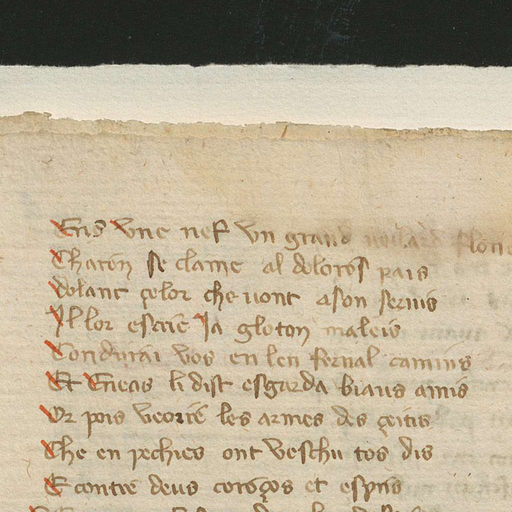 Ens vne nef vn grand flone
Charon se clame al doloros pais
dolant çelor che uont ason seruis
Il lor escrie Ja gloton maleis
Condurai vos en len fernal camins
Et Eneas li dist esgarda biaus amis
Or pois veorie les armes des çeitis
Che en pechies ont veschu tos dis
E contre deus coroços et espris